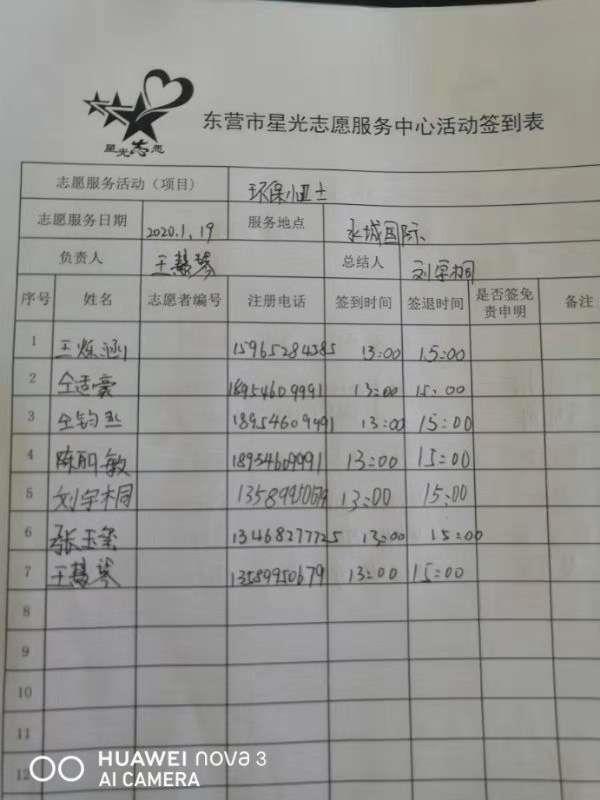 星光志愿
东营市星光志愿服务中心活动签到表
志愿服务活动（项目） 环保小卫士
志愿服务日期 2020.1.19 服务地点 水城国际
负责人 王慧琴 总结人 刘宇桐
序号 姓名 志愿者编号 注册电话 签到时间 签退时间 是否签免责申明 备注
1 王烁涵 15965284385 13:00 15:00
2 仝适豪 18954609991 13:00 15:00
3 仝钧 18954609991 13:00 15:00
4 陈丽敏 18954609991 13:00 15:00
5 刘宇桐 13589950679 13:00 15:00
6 张玉玺 13468277725 13:00 15:00
7 王慧琴 13589950679 13:00 15:00
8
9
10
11
12
HUAWEI nova 3
AI CAMERA